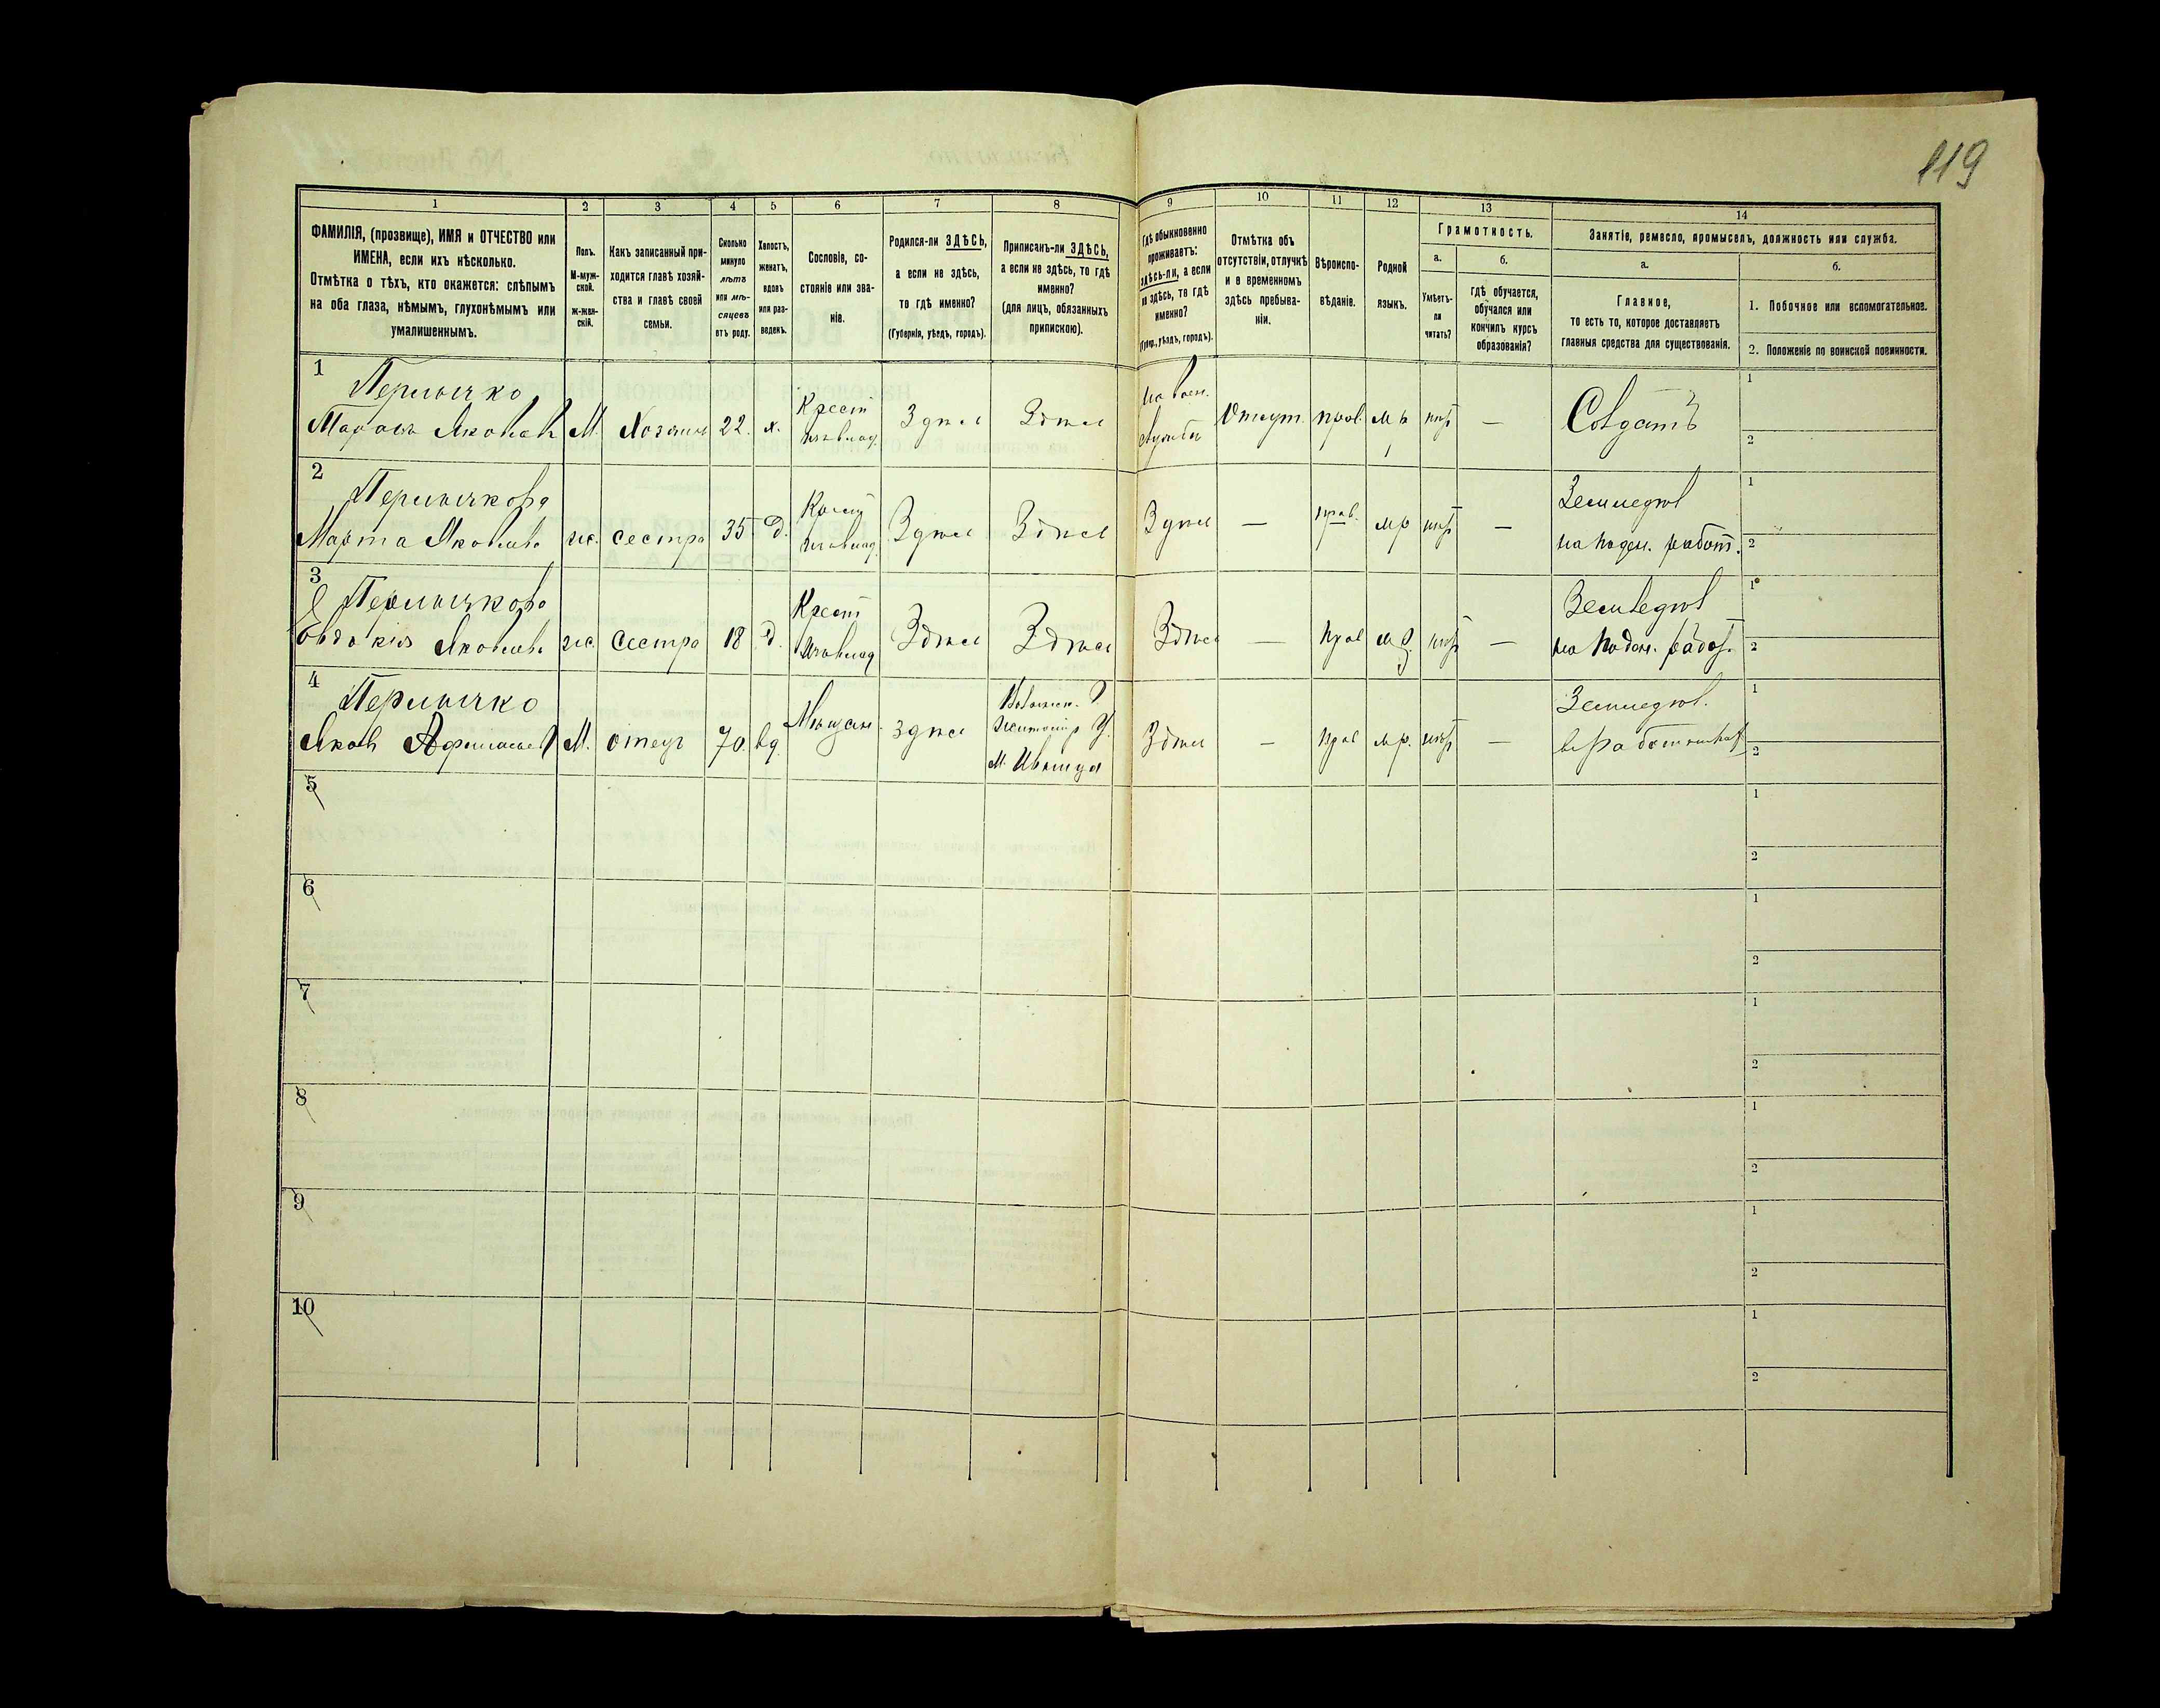 119
1
2
3
4
5
6
7
8
9
10
11
12
13
14
ФАМИЛІЯ, (прозвище), ИМЯ и ОТЧЕСТВО или
ИМЕНА, если ихъ нѣсколько.
Отмѣтка о тѣхъ, кто окажется: слѣпымъ
на оба глаза, нѣмымъ, глухонѣмымъ или
умалишеннымъ.
Полъ.
М-муж-
ской.
ж-жен-
скій.
Какъ записанный при-
ходится главѣ хозяй-
ства и главѣ своей
семьи.
Сколько
минуло
лѣтъ
или мѣ-
сяцевъ
отъ роду.
Холостъ,
женатъ,
вдовъ
или раз-
веденъ.
Сословіе, со-
стояніе или зва-
ніе.
Родился-ли ЗДѢСЬ,
а если не здѣсь,
то гдѣ именно?
(Губернія, уѣздъ, городъ).
Приписанъ-ли ЗДѢСЬ,
а если не здѣсь, то гдѣ
именно?
(для лицъ, обязанныхъ
припискою).
Гдѣ обыкновенно
проживаетъ:
здѣсь-ли, а если
не здѣсь, то гдѣ
именно?
(Губер., уѣздъ, городъ).
Отмѣтка объ
отсутствіи, отлучкѣ
и о временномъ
здѣсь пребыва-
ніи.
Вѣроиспо-
вѣданіе.
Родной
языкъ.
Грамотность.
а.
Умѣетъ-
ли
читать?
б.
гдѣ обучается,
обучался или
кончилъ курсъ
образованія?
Занятіе, ремесло, промыселъ, должность или служба.
а.
Главное,
то есть то, которое доставляетъ
главныя средства для существованія.
б.
1. Побочное или вспомогательное.
2. Положеніе по воинской повинности.
1
М.
Хозяинъ
22.
х.
Крест
Здѣсь
Здѣсь
на воен.
службѣ
Отсут.
прав.
—
Солдатъ
1
2
2
Марта Яковлева
ж.
сестра
35
д.
Здѣсь
Здѣсь
Здѣсь
—
прав.
мр
—
Земледѣл
на поден. работ.
1
2
3
Яковлева
ж.
сестра
18
д.
Крест
Здѣсь
Здѣсь
Здѣсь
—
прав
мр
—
Земледѣл
на поден. работ.
1
2
4
Яковъ
М.
отецъ
70.
вд.
Мѣщан.
здѣсь
Здѣсь
—
прав
мр.
—
Земледѣл.
1
2
5
1
2
6
1
2
7
1
2
8
1
2
9
1
2
10
1
2